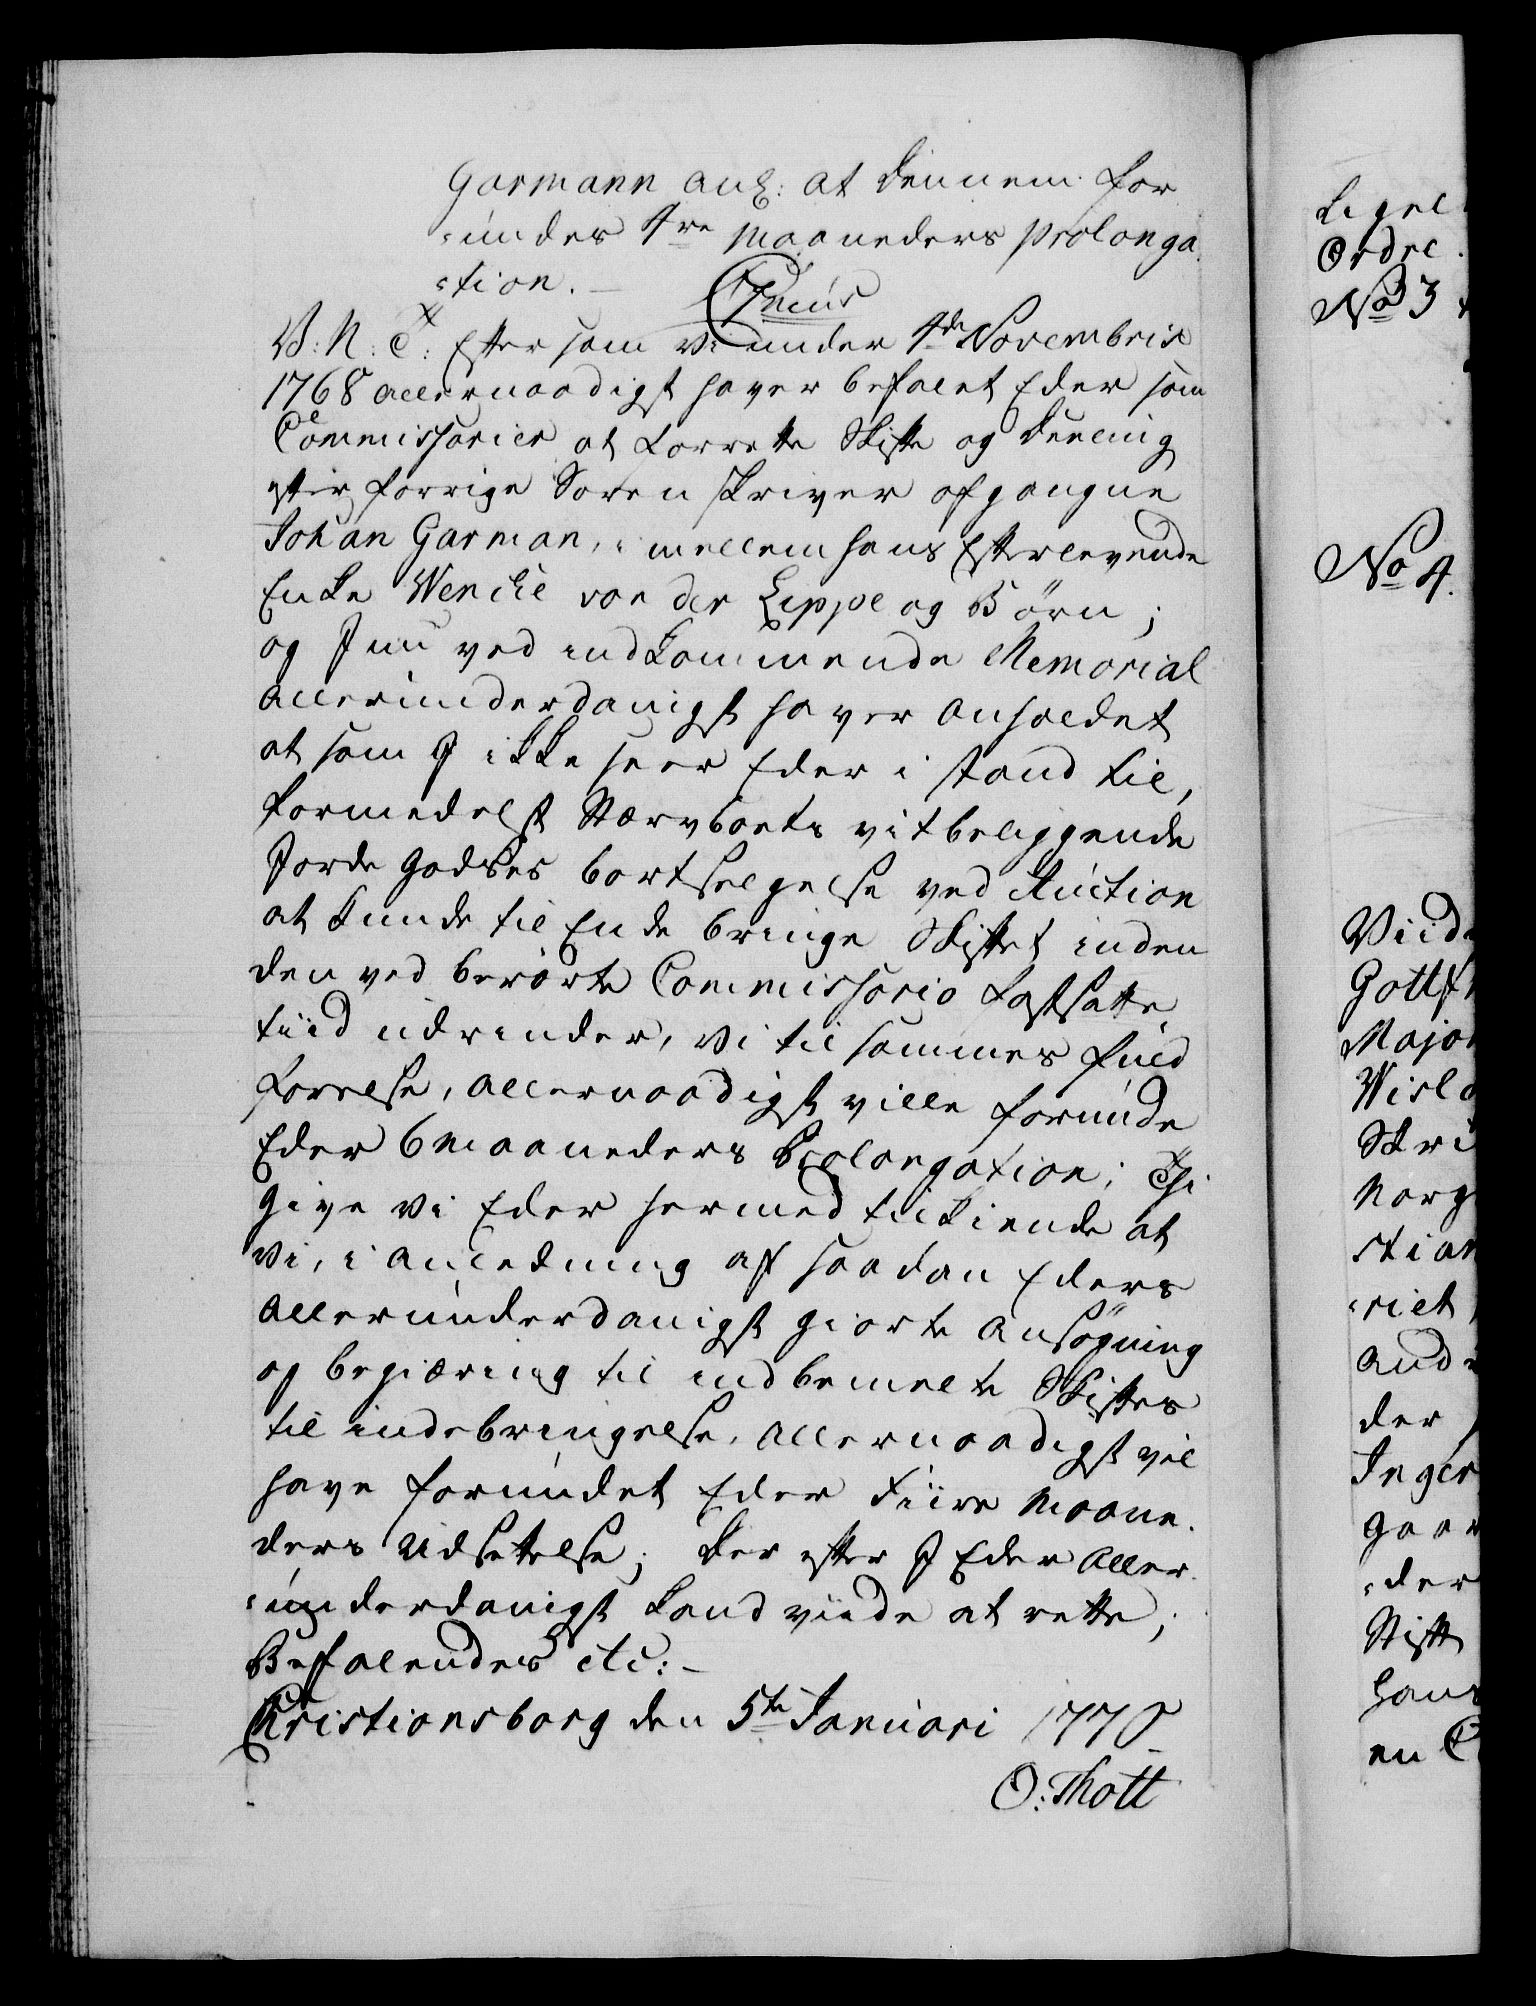 Garmann anl: at dennem for
-undes 4re Maaneders Prolonga
-tion. —
Genus
V: N: T: Eftersom Vi under 4de Novembris
1768 allernaadigst haver befalet Eder som
Commissarier at forrette Skifte og Deeling
efter forrige Sorenskriver afgangne
Johan Garman, imellem hans Efterlevende
Enke Wenche von der Lippe og Børn;
og I nu ved indkommende Memorial
allerunderdanigst haver anholdet
at som I ikke seer Eder i stand til,
formedelst Stærvboets vitbeliggende
Jorde Godses bortsælgelse ved Auction
at kunde til Ende bringe Skiftet inden
den ved berørte Commissorio fastsatte
tiid udrinder, Vi til sammes fuld
førelse, allernaadigst ville forunde
Eder 6 Maaneders Prolongation; Thi
give Vi Eder hermed tilkiende at
Vi, i anledning af saadan Eders
allerunderdanigst giorte Ansøgning
og begiæring til indbemelte Skiftes
til endebringelse, allernaadigst vil
have forundet Eder fiire Maane-
ders Udsettelse; Der efter I Eder aller-
-underdanigst kand viide at rette;
Befalendes etc: —
Christiansborg den 5te Januari 1770
O: Thott
Ligel
Ordre.
No 3
No 4.
Viid
Gottf
Major
Wisl
Skri
Norg
stian
-riet
and
der
Inger
gaar
-der
Stift
hans
en C